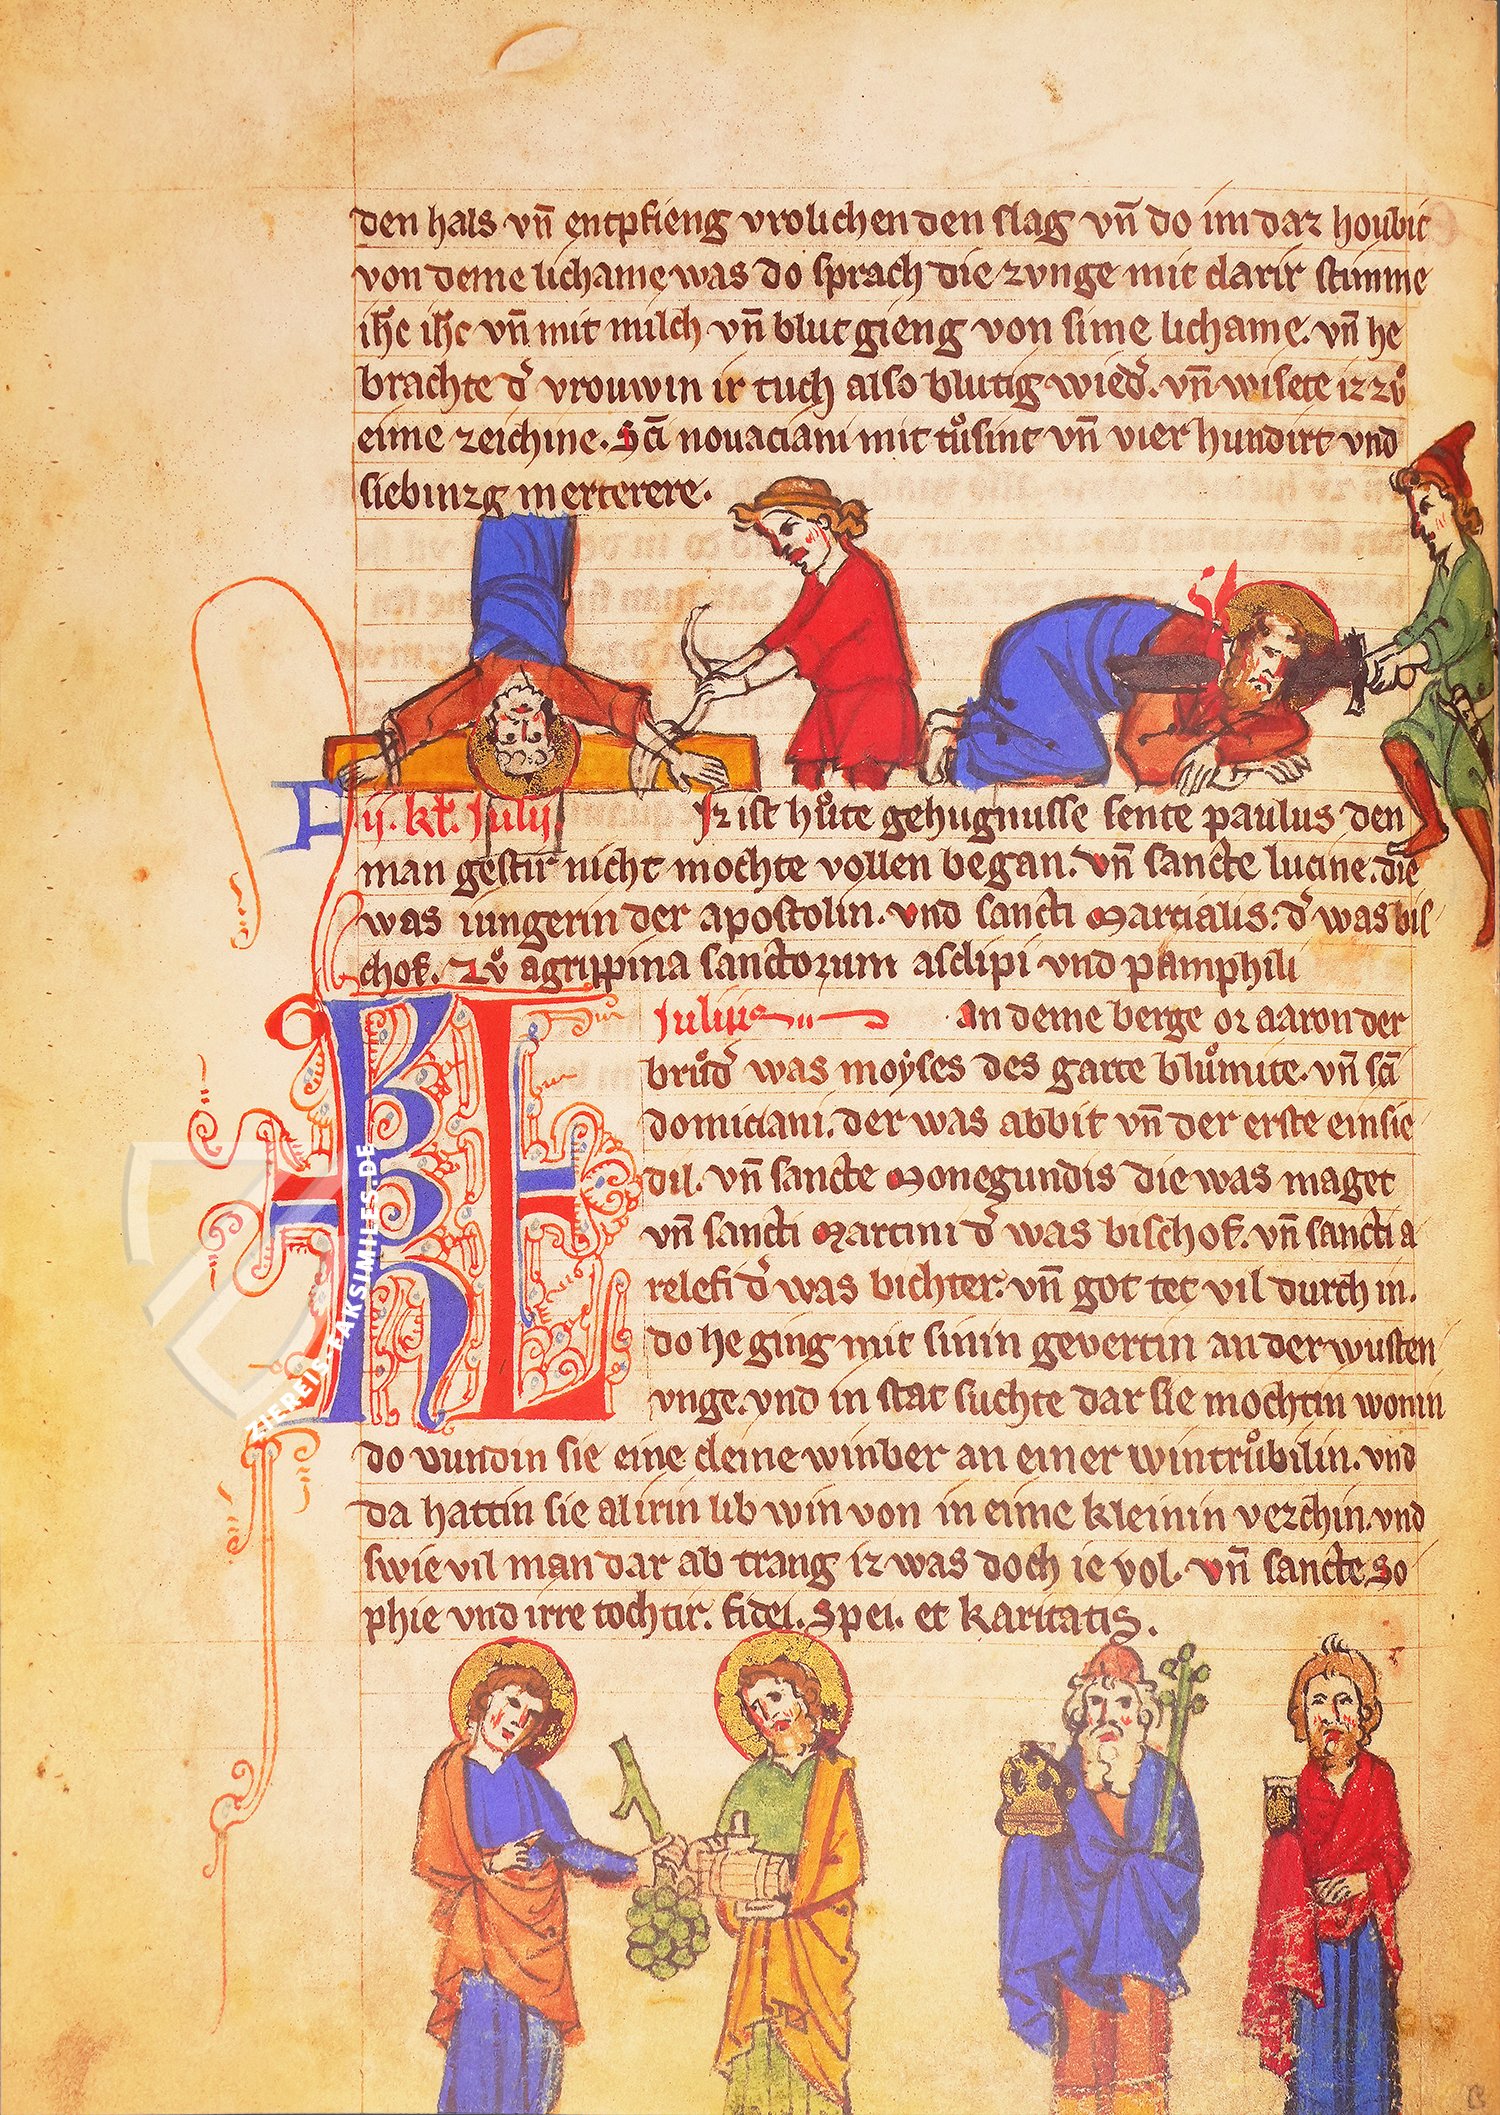 den hals vn̄ entpfieng vrolichen den slag vn̄ do im daz houbit
von deme lichame was do sprach die zvnge mit clarir stimme
ih̄c ih̄c vn̄ mit milch vn̄ blut gieng von sime lichame. vn̄ he
brachte d̾ vrouwin ir tuch also blutig wied̾. vn̄ wisete iz zů
eime zeichine. Sc̄i nouaciani mit tůsint vn̄ vier hundirt vnd
siebinzg merterere.
P ij. kł. Julij. Iz ist hůte gehugnusse sente paulus den
man gestir nicht mochte vollen began. Vn̄ sancte lucine. die
was iungerin der apostolin. vnd sancti Marcialis. d̾ was bis
chof. Zů agrippina sanctorum asclipi vnd pamphili
KL Julius An deme berge or aaron der
brůd̾ was moyses des garte blůmite. vn̄ sc̄i
domiciani. der was abbit vn̄ der erste einsie
dil. vn̄ sancte Monegundis die was maget
vn̄ sancti Martini d̾ was bischof. vn̄ sancti a
relefi d̾ was bichter. vn̄ got tet vil durch in.
do he ging mit sinin gevertin an der wusten
vnge. vnd in stat suchte dar sie mochtin wonin
do vundin sie eine cleine winber an einer wintrůbilin. vnd
da hattin sie al irin lib win von in eime kleinin vezchin. vnd
swie vil man dar ab trang iz was doch ie vol. Vn̄ sancte So
phie vnd irre tochtir. fidei. Spei. et Karitatis.
ZIEREIS-FAKSIMILES.DE